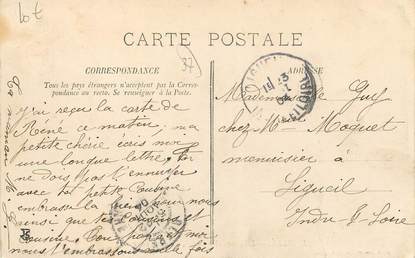 lot
37
CARTE POSTALE
CORRESPONDANCE
ADRESSE
Tous les pays étrangers n'acceptent pas la Corres-
pondance au recto. Se renseigner à la Poste.
J'ai reçu la carte de
René ce matin; ma
petite chérie écris moi
une longue lettre. Tu
ne dois pas t'ennuyer
avec ton petit cousin
embrasse la pour nous
ainsi que tes cousins et
cousine. Ton papa et moi
nous t'embrassons mille fois
Mademoiselle Guy
chez Mme Moquet
menuisier à
Ligueil
Indre & Loire